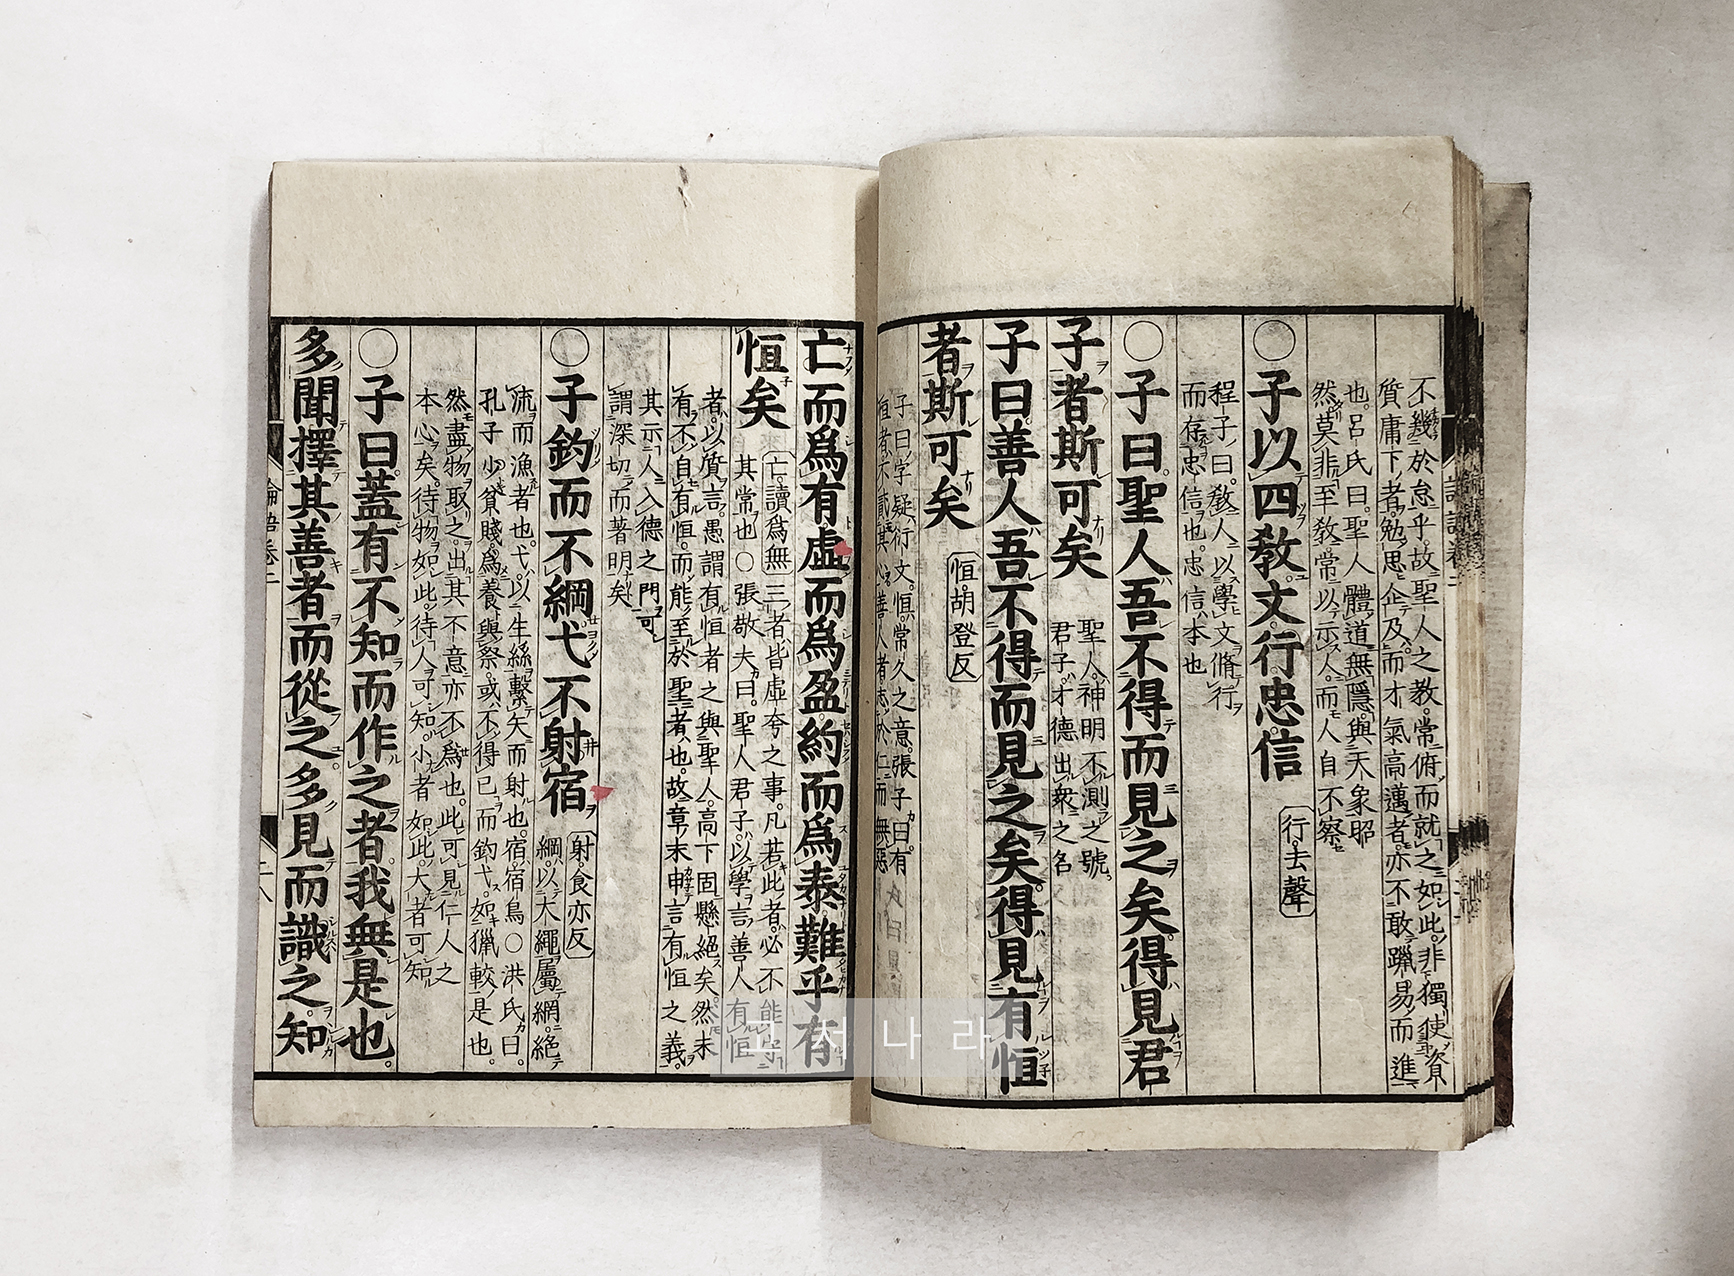 不幾於怠乎故聖人之教常俯而就之如此非獨使資
質庸下者勉思企及而才氣高邁者亦不敢躐易而進
也呂氏曰聖人體道無隱與天象昭
然莫非至教常以示人而人自不察
○子以四教文行忠信
行去聲
程子曰教人以學文脩行
而存忠信也忠信本也
○子曰聖人吾不得而見之矣得見君
子者斯可矣
聖人神明不測之號
君子才德出衆之名
子曰善人吾不得而見之矣得見有恒
者斯可矣
恒胡登反
子曰字疑衍文恒常久之意張子曰有
恒者不貳其心善人者志於仁而無惡
亡而爲有虛而爲盈約而爲泰難乎有
恒矣
亡讀爲無
三者皆虛夸之事凡若此者必不能守
其常也○張敬夫曰聖人君子以學言善人有恒
者以質言愚謂有恒者之與聖人高下固懸絕矣然未
有不自有恒而能至於聖者也故章末申言有恒之義
其示人入德之門可
謂深切而著明矣
○子釣而不綱弋不射宿
射食亦反
綱以大繩屬網絕
流而漁者也弋以生絲繫矢而射也宿宿鳥○洪氏曰
孔子少貧賤爲養與祭或不得已而釣弋如獵較是也
然盡物取之出其不意亦不爲也此可見仁人之
本心矣待物如此待人可知小者如此大者可知
○子曰蓋有不知而作之者我無是也
多聞擇其善者而從之多見而識之知
論語卷二
고서나라